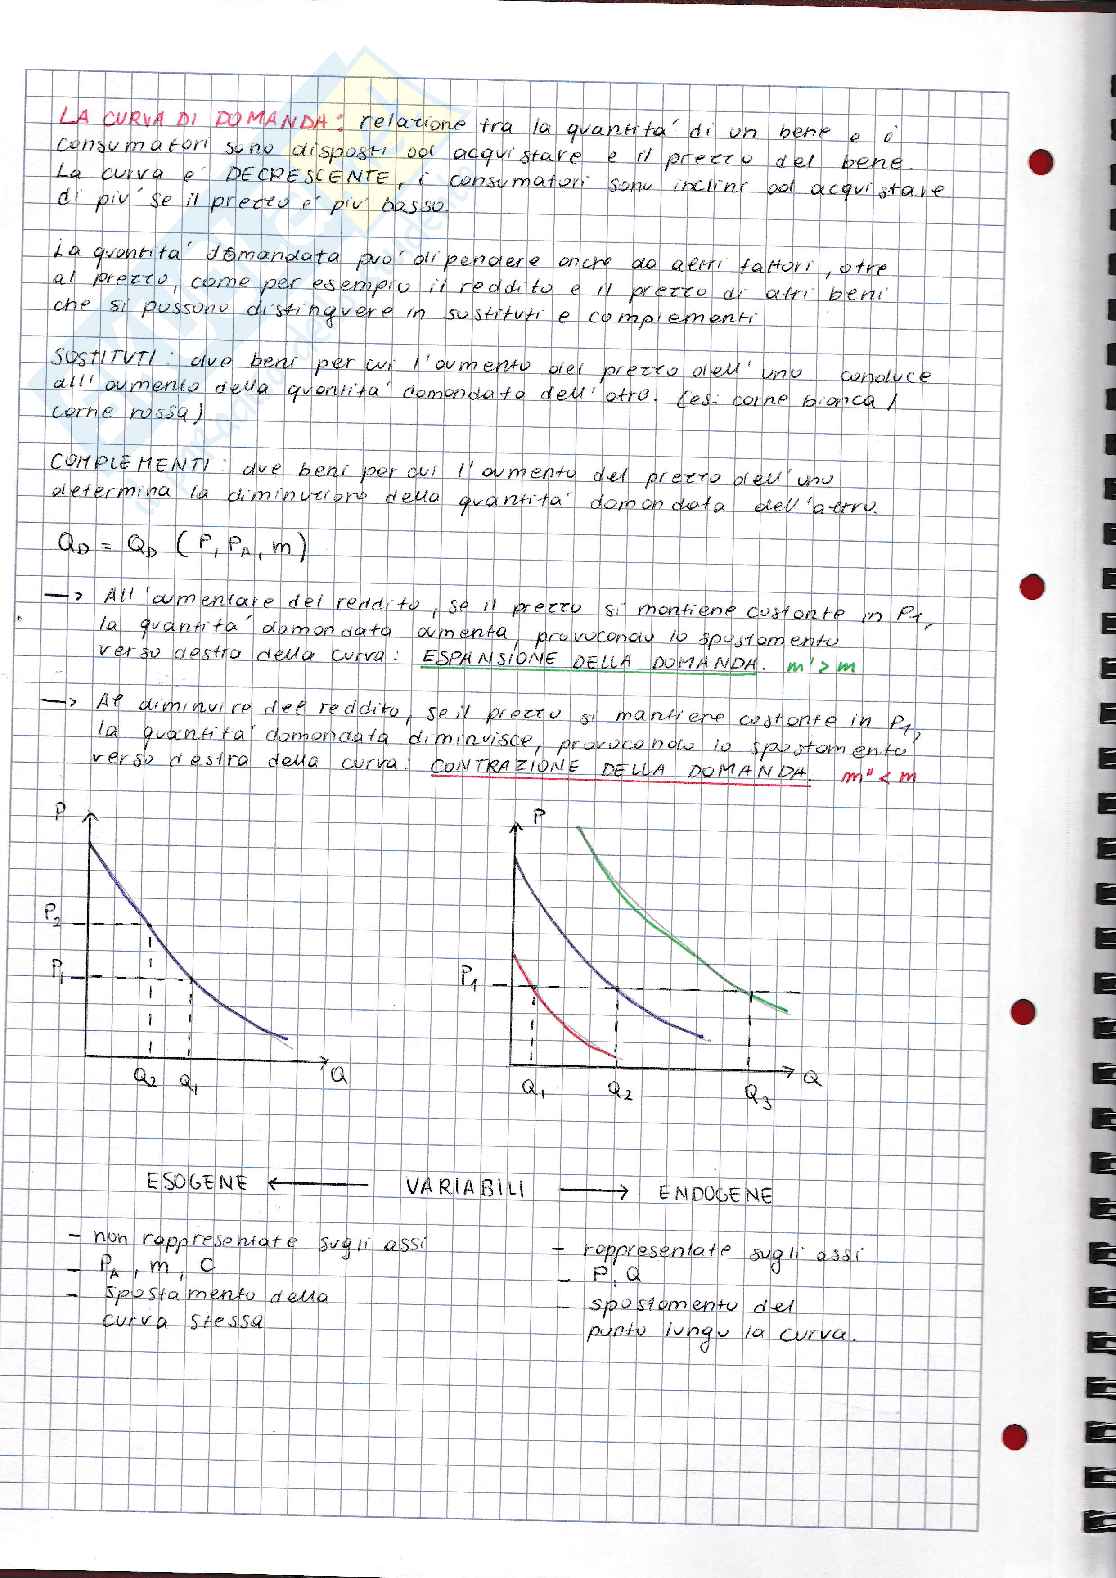 LA CURVA DI DOMANDA: relazione tra la quantità di un bene e i
consumatori sono disposti ad acquistare e il prezzo del bene.
La curva è DECRESCENTE, i consumatori sono inclini ad acquistare
di più se il prezzo è più basso.
La quantità domandata può dipendere anche da altri fattori, otre
al prezzo, come per esempio il reddito e il prezzo di altri beni
che si possono distinguere in sustituti e complementi
SOSTITUTI: due beni per cui l'aumento del prezzo dell'uno conduce
all'aumento della quantità domandata dell'atro. (es: carne bianca/
carne rossa)
COMPLEMENTI: due beni per cui l'aumento del prezzo dell'uno
determina la diminuzione della quantità domandata dell'altro.
QD = QD (P, PA, m)
→ All'aumentare del reddito, se il prezzo si mantiene costante in P1,
la quantità domandata aumenta, provocando lo spostamento
verso destra della curva: ESPANSIONE DELLA DOMANDA. m' > m
→ Al diminuire del reddito, se il prezzo si mantiene costante in P1,
la quantità domandata diminuisce, provocando lo spostamento
verso destra della curva: CONTRAZIONE DELLA DOMANDA. m" < m
P
P2
P1
Q2 Q1
Q
P
P1
Q1 Q2 Q3
Q
ESOGENE ← VARIABILI → ENDOGENE
- non rappresentate sugli assi
- PA, m, C
- spostamento della
curva stessa
- rappresentate sugli assi
- P, Q
- spostamento del
punto lungo la curva.